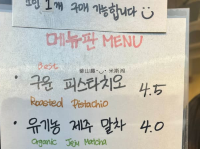 1인 1개 구매 가능합니다
메뉴판 MENU
Best
구운 피스타치오 4.5
Roasted Pistachio
• 유기농 제주 말차 4.0
Organic Jeju Matcha